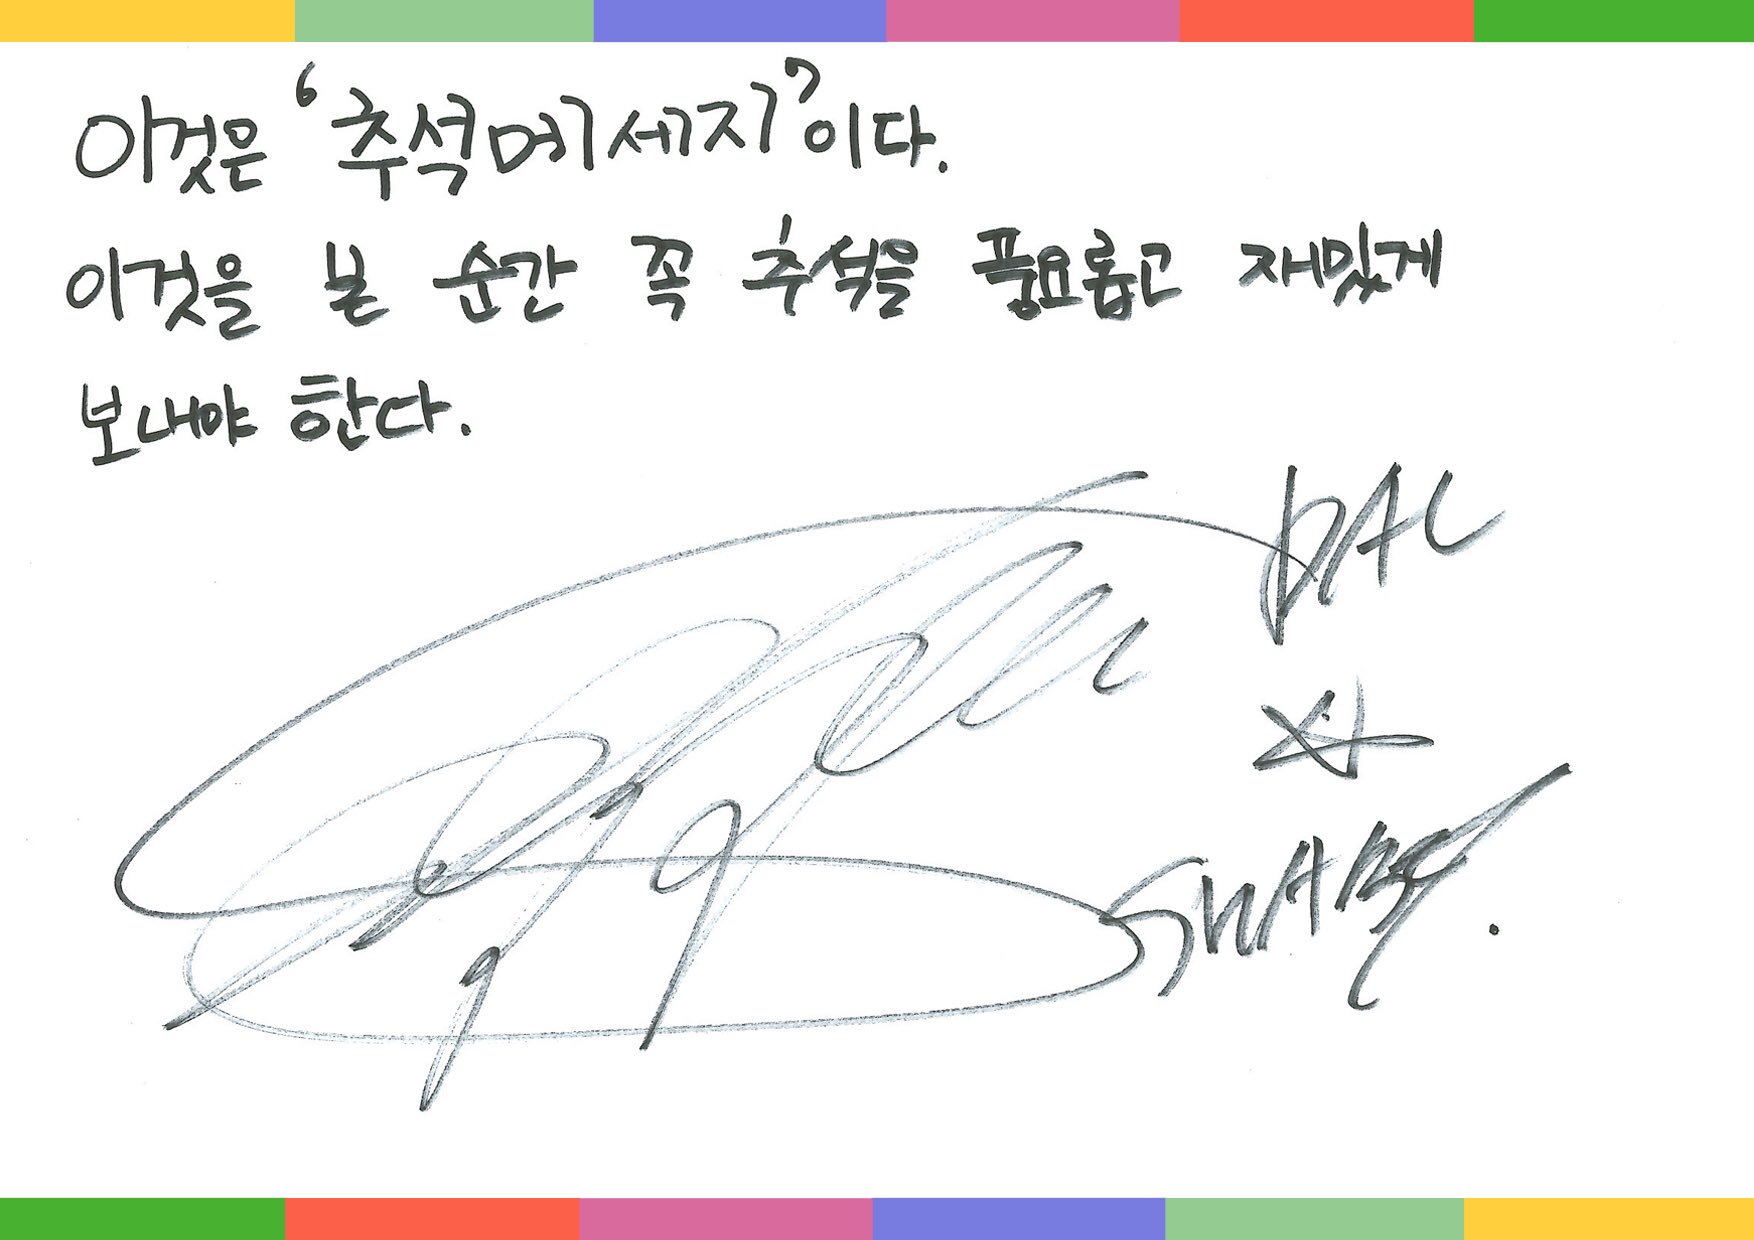 이것은 '추석메세지'이다.
이것을 본 순간 꼭 추석을 풍요롭고 재밌게
보내야 한다.
DAL
★